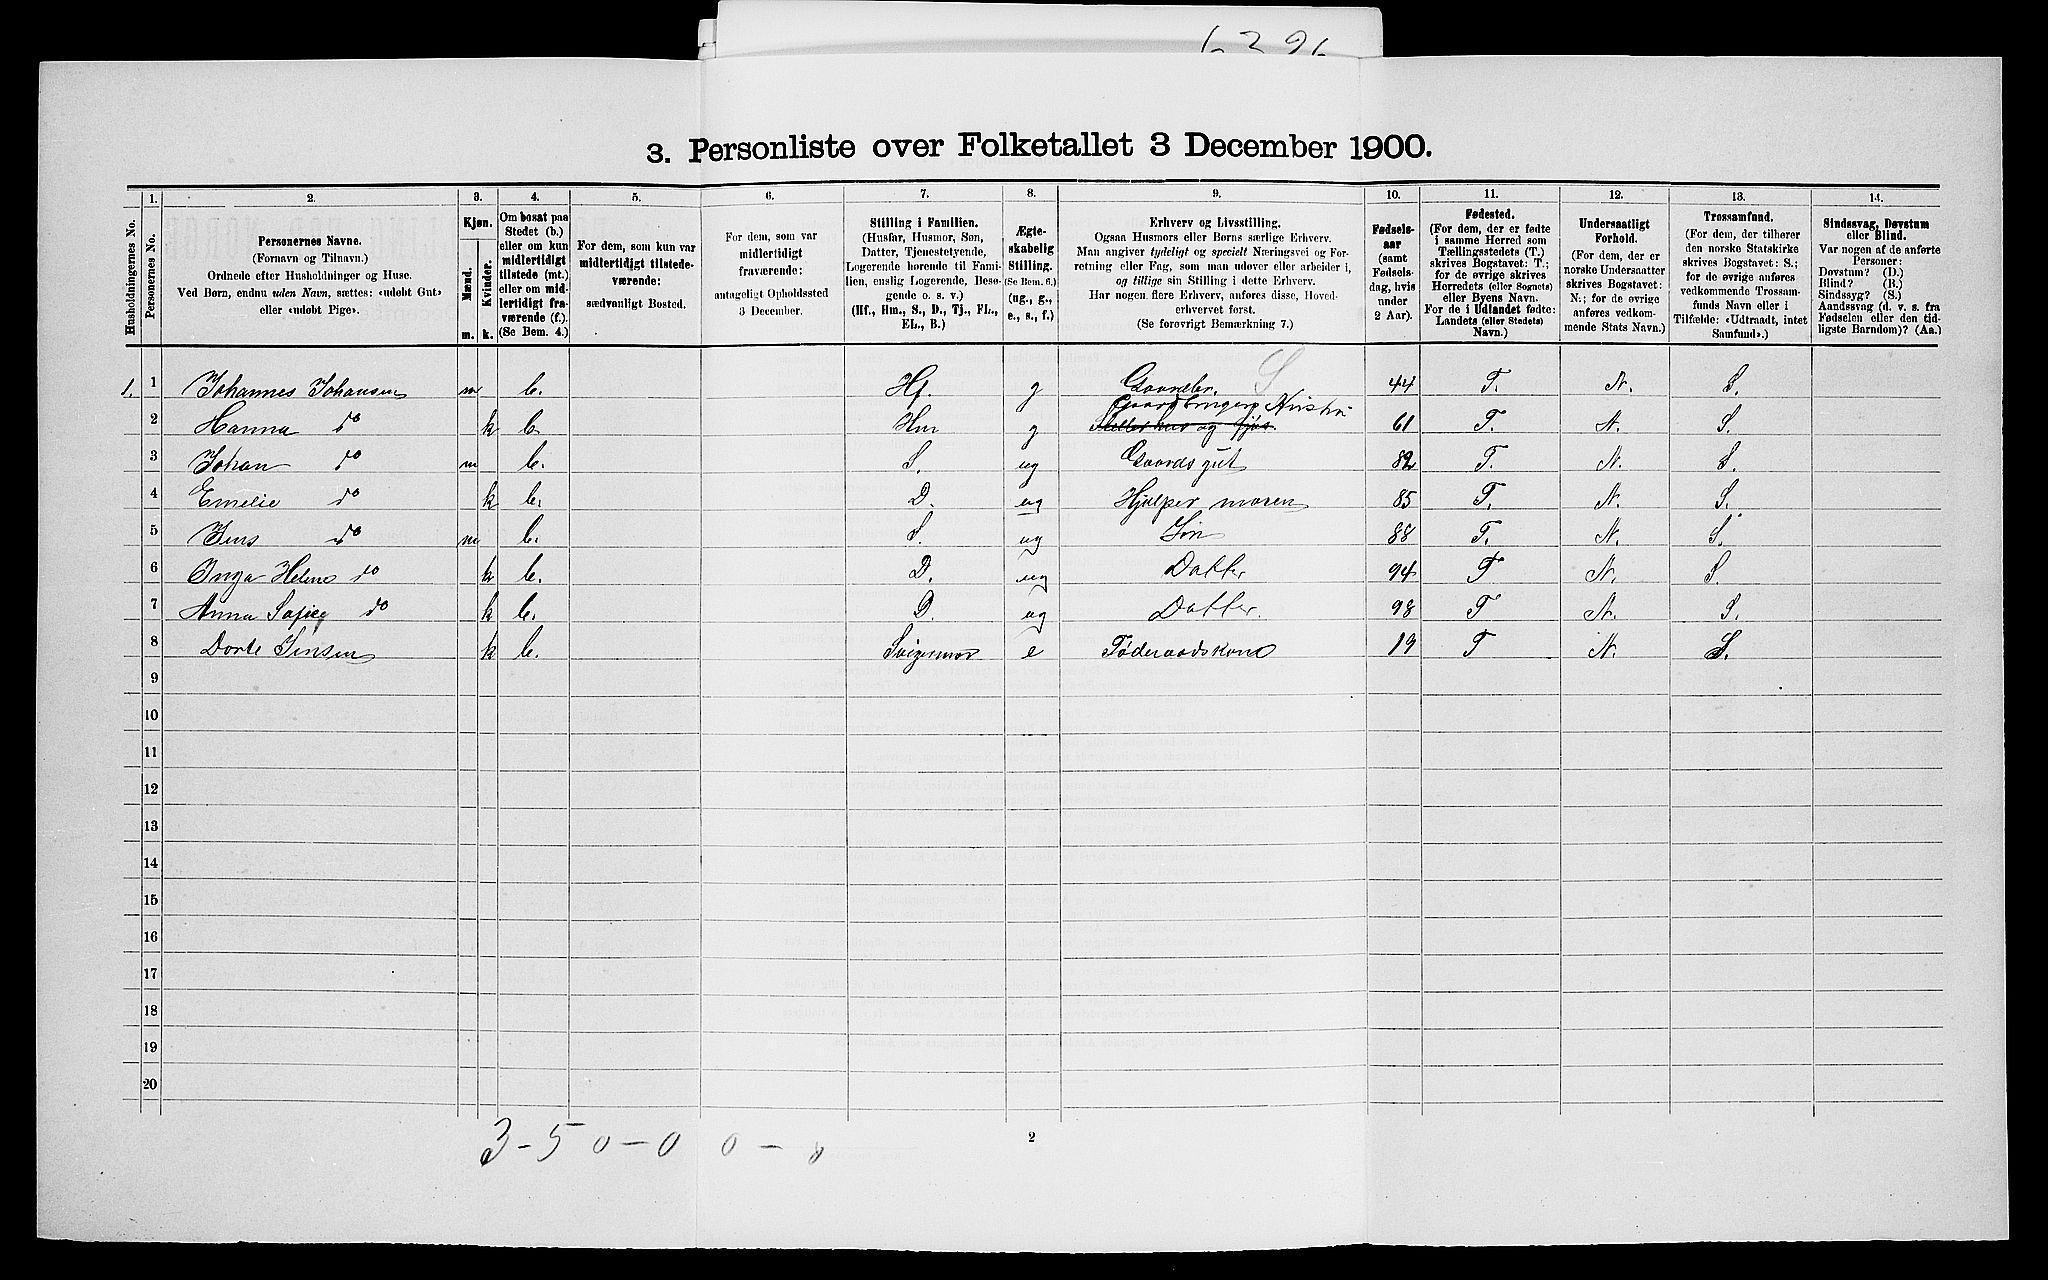 3. Personliste over Folketallet 3 December 1900.
Husholdningernes No.
1.
Personernes No.
2.
Personernes Navne.
(Fornavn og Tilnavn.)
Ordnede efter Husholdninger og Huse.
Ved Børn, endnu uden Navn, sættes: «udøbt Gut»
eller «udøbt Pige».
3.
Kjøn.
Mænd.
Kvinder.
m. k.
4.
Om bosat paa
Stedet (b.)
eller om kun
midlertidigt
tilstede (mt.)
eller om mid-
lertidigt fra-
værende (f.).
(Se Bem. 4.)
5.
For dem, som kun var
midlertidigt tilstede-
værende:
sædvanligt Bosted.
6.
For dem, som var
midlertidigt
fraværende:
antageligt Opholdssted
3 December.
7.
Stilling i Familien.
(Husfar, Husmor, Søn,
Datter, Tjenestetyende,
Logerende hørende til Fami-
lien, enslig Logerende, Besø-
gende o. s. v.)
(Hf., Hm., S., D., Tj., FL.,
EL., B.)
8.
Ægte-
skabelig
Stilling.
(Se Bem. 6.)
(ug., g.,
e., s., f.)
9.
Erhverv og Livsstilling.
Ogsaa Husmors eller Børns særlige Erhverv.
Man angiver tydeligt og specielt Næringsvei og For-
retning eller Fag, som man udøver eller arbeider i,
og tillige sin Stilling i dette Erhverv.
Har nogen flere Erhverv, anføres disse, Hoved-
erhvervet først.
(Se forøvrigt Bemærkning 7.)
10.
Fødsels-
aar
(samt
Fødsels-
dag, hvis
under
2 Aar).
11.
Fødested.
(For dem, der er fødte
i samme Herred som
Tællingsstedets (T.)
skrives Bogstavet: T.;
for de øvrige skrives
Herredets (eller Sognets)
eller Byens Navn.
For de i Udlandet fødte:
Landets (eller Stedets)
Navn.)
12.
Undersaatligt
Forhold.
(For dem, der er
norske Undersaatter
skrives Bogstavet:
N.; for de øvrige
anføres vedkom-
mende Stats Navn.)
13.
Trossamfund.
(For dem, der tilhører
den norske Statskirke
skrives Bogstavet: S.;
for de øvrige anføres
vedkommende Trossam-
funds Navn eller i
Tilfælde: «Udtraadt, intet
Samfund».)
14.
Sindssvag, Døvstum
eller Blind.
Var nogen af de anførte
Personer:
Døvstum? (D.)
Blind? (B.)
Sindssyg? (S.)
Aandssvag (d. v. s. fra
Fødselen eller den tid-
ligste Barndom)? (Aa.)
1. 1 Johannes Johansen m b. Hf. g Gaardbr. S 44 T. N. S.
2 Hanna do k b. Hm g Gaardbrugers Hustru 61 T. N. S.
3 Johan do m b. S. ug Gaardsgut 82 T. N. S.
4 Emelie do k b. D. ug Hjælper moren 85 T. N. S.
5 Jens do m b. S. ug Søn 88 T. N. S.
6 Inga Helene do k b. D. ug Datter 94 T N. S.
7 Anna Sofie do k b. D. ug Datter. 98 T N. S.
8 Dorte Jensen k b. Svigermor e Føderaadskone 19 T N. S.
9
10
11
12
13
14
15
16
17
18
19
20
3 - 5 0 - 0 0 - 0
2